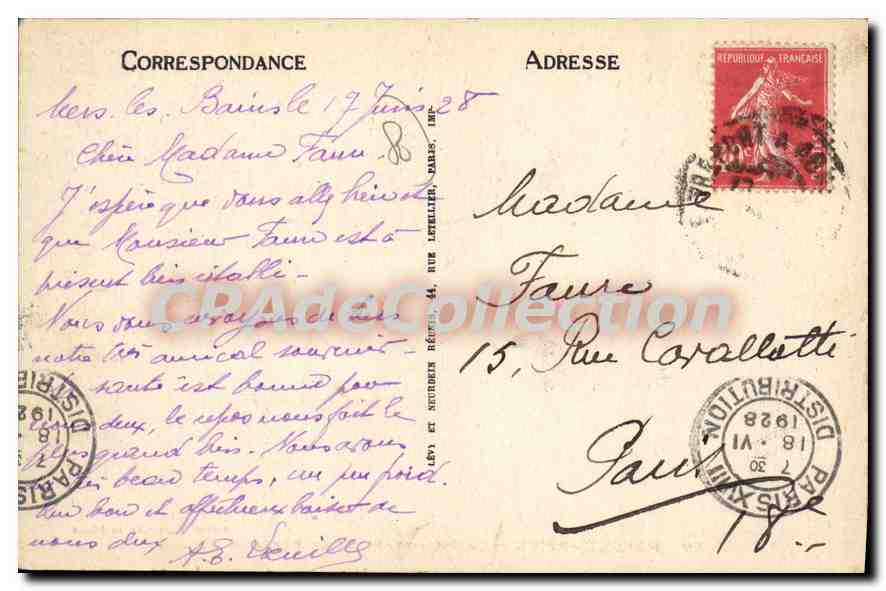 CORRESPONDANCE
Mers-les-Bains le 17 Juin 28
Chère Madame Faure
J'espère que vous allez bien et
que Monsieur Faure est à
présent bien établi -
Nous vous envoyons de Mers
notre très amical souvenir -
santé est bonne pour
deux, le repos nous fait le
plus grand bien. Nous avons
beau temps, un peu froid.
bon et affectueux baiser de
nous deux
A. E.
LÉVY ET NEURDEIN RÉUNIS, 44, RUE LETELLIER, PARIS, IMP.
ADRESSE
REPUBLIQUE FRANÇAISE
Madame
Faure
15, Rue Cavallotti
Paris
18e
PARIS XVIII
7 30
18 · VI
1928
DISTRIBUTION
PARIS
7
18
1928
DISTRIB
CPAdeCollection